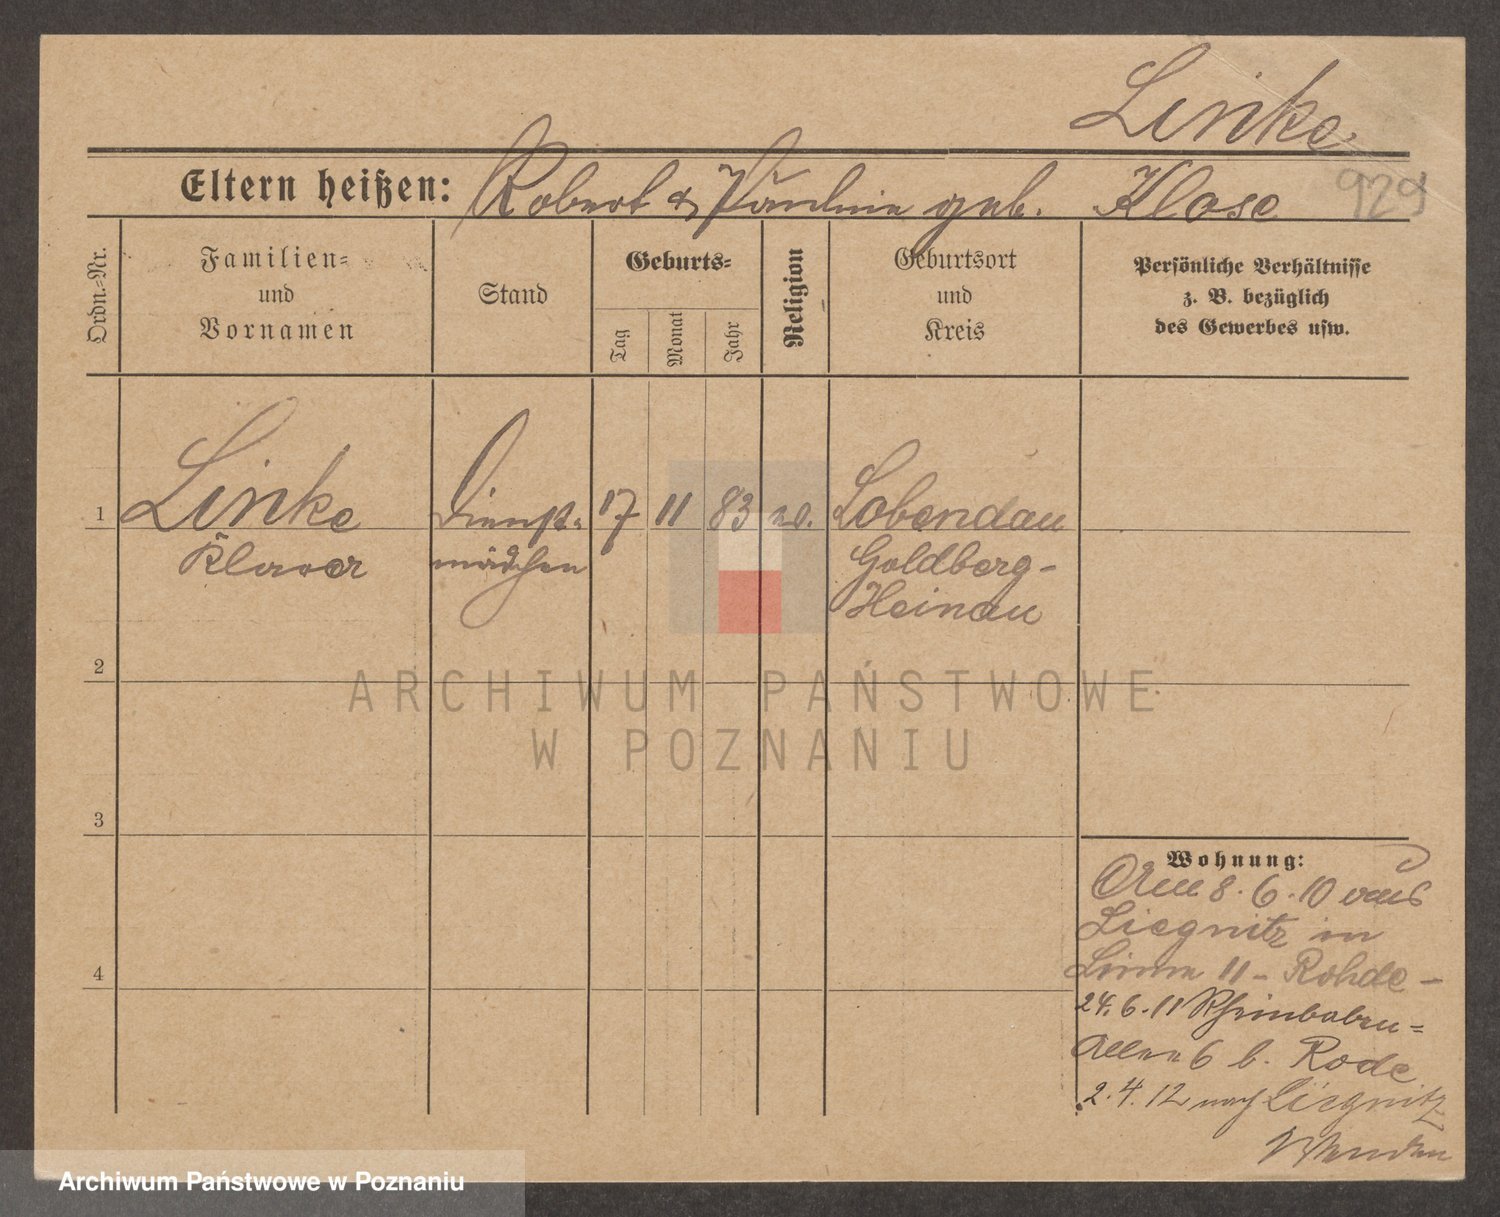 Linke
929
Eltern heißen: Robert & Pauline geb. Klose
Ordn.-Nr.
Familien-
und
Vornamen
Stand
Geburts-
Tag
Monat
Jahr
Religion
Geburtsort
und
Kreis
Persönliche Verhältnisse
z. B. bezüglich
des Gewerbes usw.
1
Linke
Dienst-
mädchen
17
11
83
Lobendau
Goldberg-
Heinau
2
ARCHIWUM PAŃSTWOWE
W POZNANIU
3
Wohnung:
Am 8.6.10 aus
Liegnitz in
11 - Rohde -
4
24.6.11 Rheinbaben-
Allee 6 b. Rode
2.4.12 nach Liegnitz
Archiwum Państwowe w Poznaniu